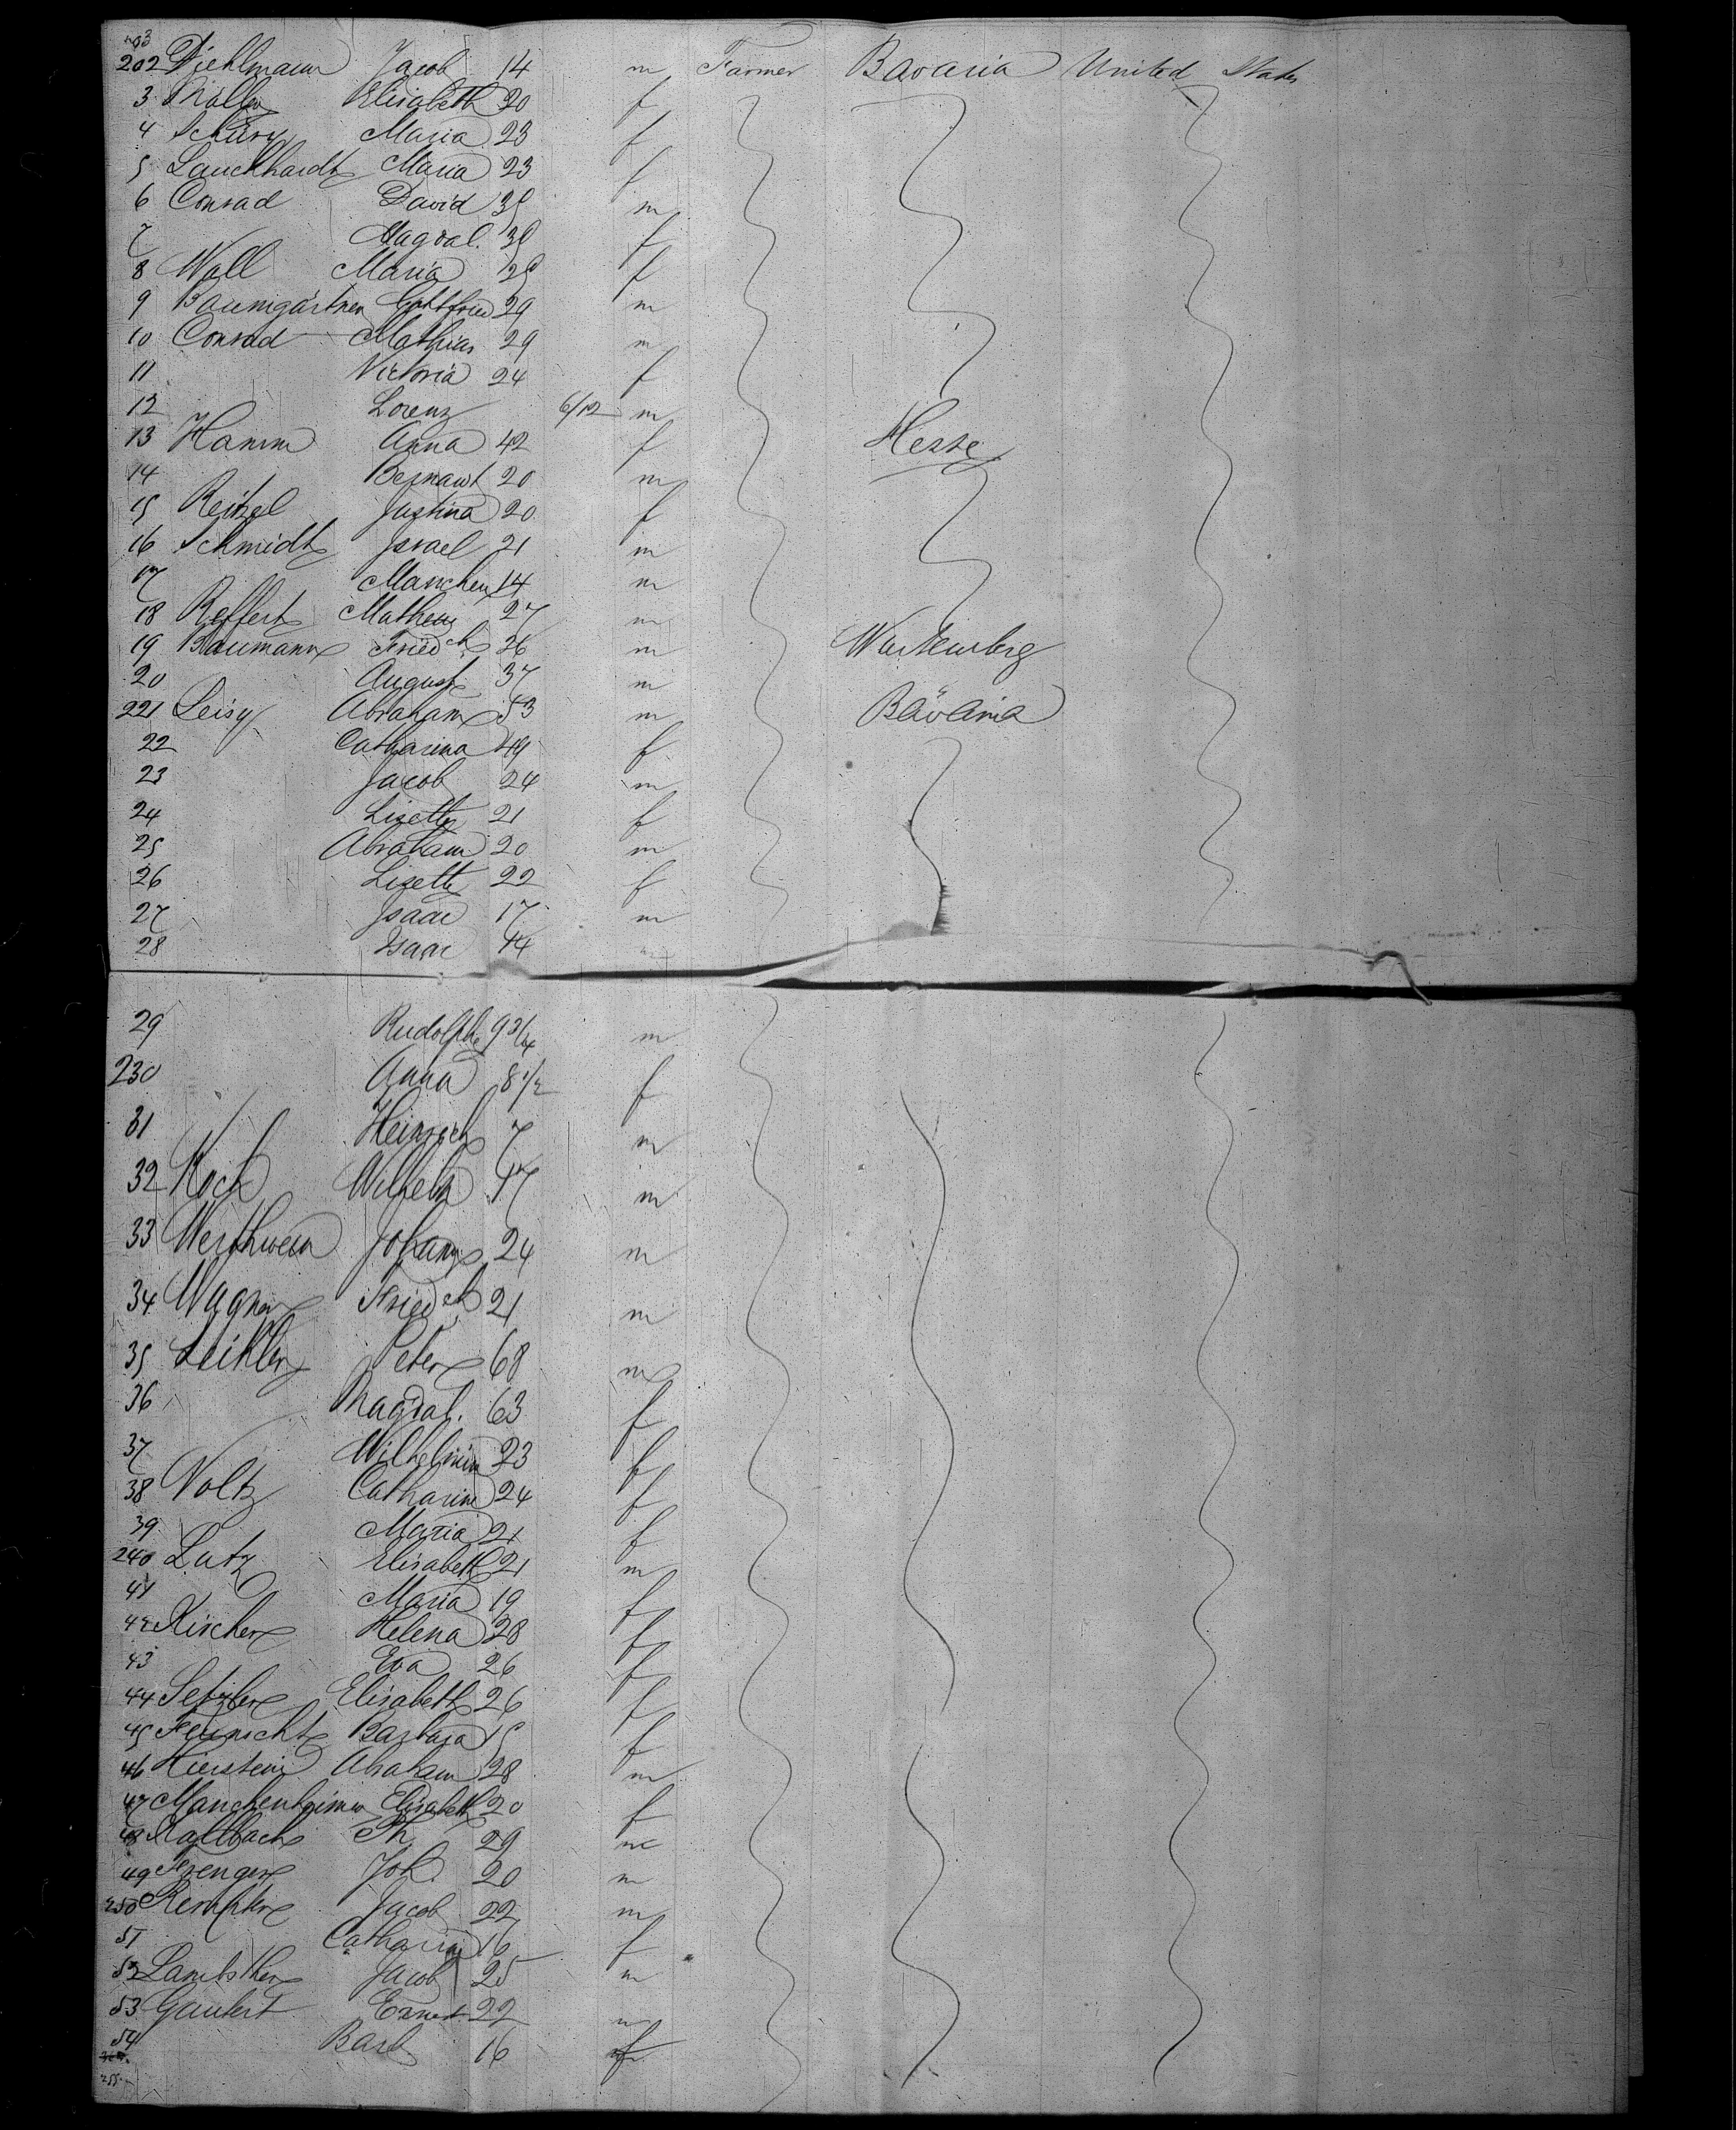 203
202 Diehlmann Jacob 14 m Farmer Bavaria United States
3 Müller Elisabeth 20 f
4 Maria 23 f
5 Lauckhardt Maria 23 f
6 Conrad David 35 m
7 Magdal. 38 f
8 Wall Maria 25 f
9 Baumgärtner Gottfried 29 m
10 Conrad Mathias 29 m
11 Victoria 24 f
12 Lorenz 6/12 m
13 Hamm Anna 42 f Hesse
14 Bernard 20 m
15 Reitzel Justina 20 f
16 Schmidt Israel 21 m
17 14 m
18 Reffert Matheus 27 m
19 Baumann Friedch 36 m Wurtemberg
20 August 37 m
221 Leisy Abraham 53 m Bavaria
22 Catharina 49 f
23 Jacob 24 m
24 Lisette 21 f
25 Abraham 20 m
26 Lisette 22 f
27 Isaac 17 m
28 14
29 Rudolph 9 3/4 m
230 Anna 8 1/2 f
31 Heinrich 7 m
32 Koch Wilhelm 17 m
33 Werthwein Johann 24 m
34 Wagner Friedch 21 m
35 Peter 68 m
36 Magdal. 63 f
37 Wilhelmin 23 f
38 Voltz Catharine 24 f
39 Maria 21 f
240 Lutz Elisabeth 21 m
41 Maria 19 f
42 Kircher Helena 28 f
43 Eva 26 f
44 Setzler Elisabeth 26 f
45 Barbara 15 f
46 Hierstein Abraham 28 m
47 Manchenheimer Elisabeth 20 f
48 Kallbach Ph 29 m
49 Joh. 20 m
250 Jacob 22 m
51 Catharina 16 f
52 Jacob 25 m
53 Gaubert Ernst 22 m
54 Barb 16 f
255